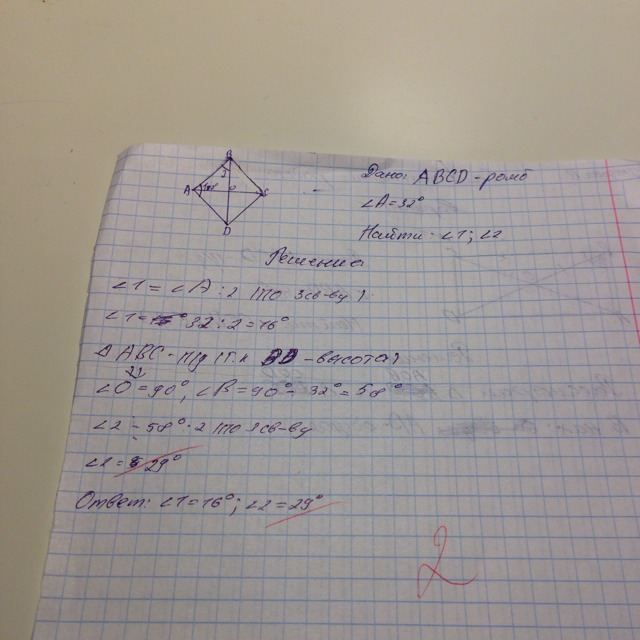 B
A
C
D
Дано: ABCD - ромб
∠A = 32°
Найти: ∠1; ∠2
Решение
∠1 = ∠A : 2 (по 3 св-ву)
∠1 = 32 : 2 = 16°
△ ABC - п/у (т.к BD - высота)
∠O = 90°, ∠B = 90° - 32° = 58°
∠2 = 58° : 2 (по 3 св-ву)
∠2 = 29°
Ответ: ∠1 = 16°; ∠2 = 29°
2